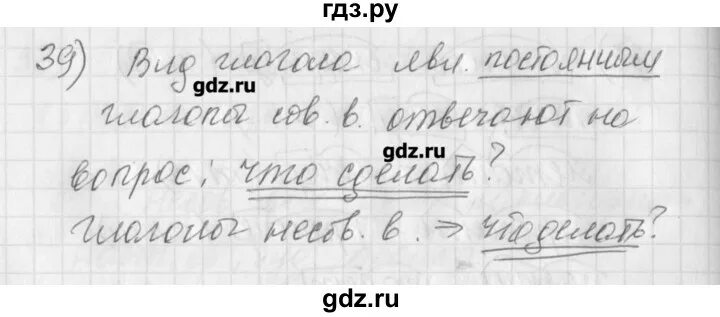 гдз.ру
39) Вид глагола явл. постоянным
gdz.ru
глаголы сов. в. отвечают на
gdz.ru
вопрос: что сделать?
глаголы несов. в. => что делать?
gdz.ru